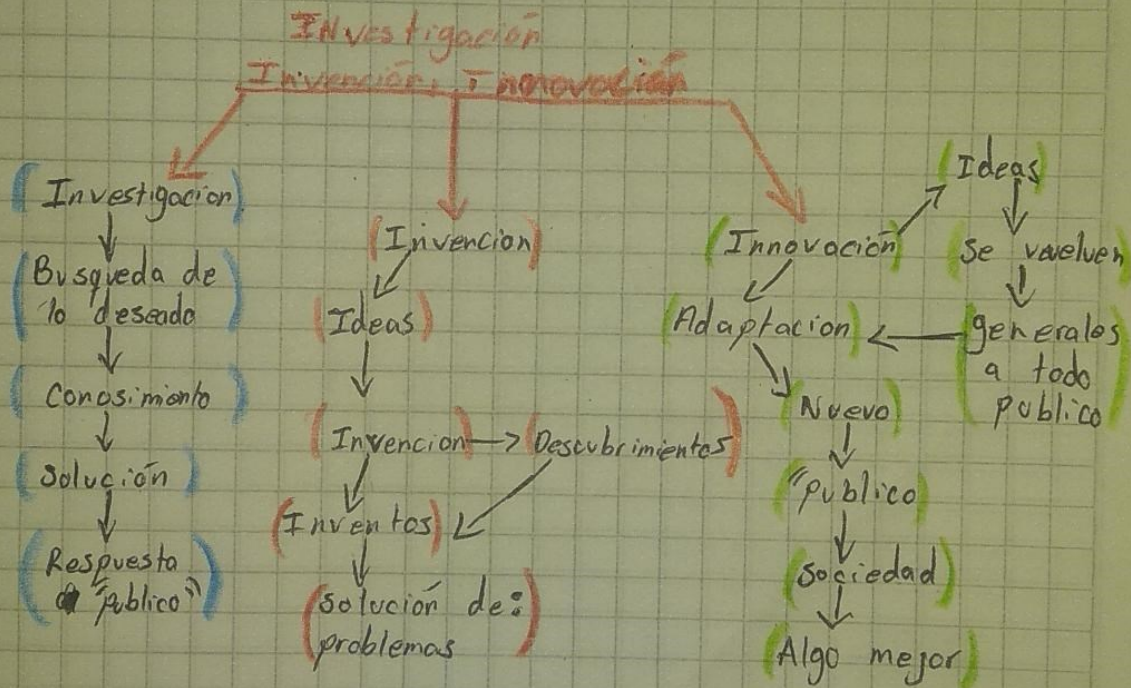 Investigación
Invención, Innovación
(Investigacion)
(Busqueda de
lo deseado)
(Conosimiento)
(Solución)
(Respuesta
a "publico")
(Invencion)
(Ideas)
(Invencion)
(Descubrimientos)
(Inventos)
(Solución de:
problemas)
(Innovación)
(Ideas)
(Se vuelven)
(generales
a todo
publico)
(Adaptacion)
(Nuevo)
("publico)
(Sociedad)
(Algo mejor)